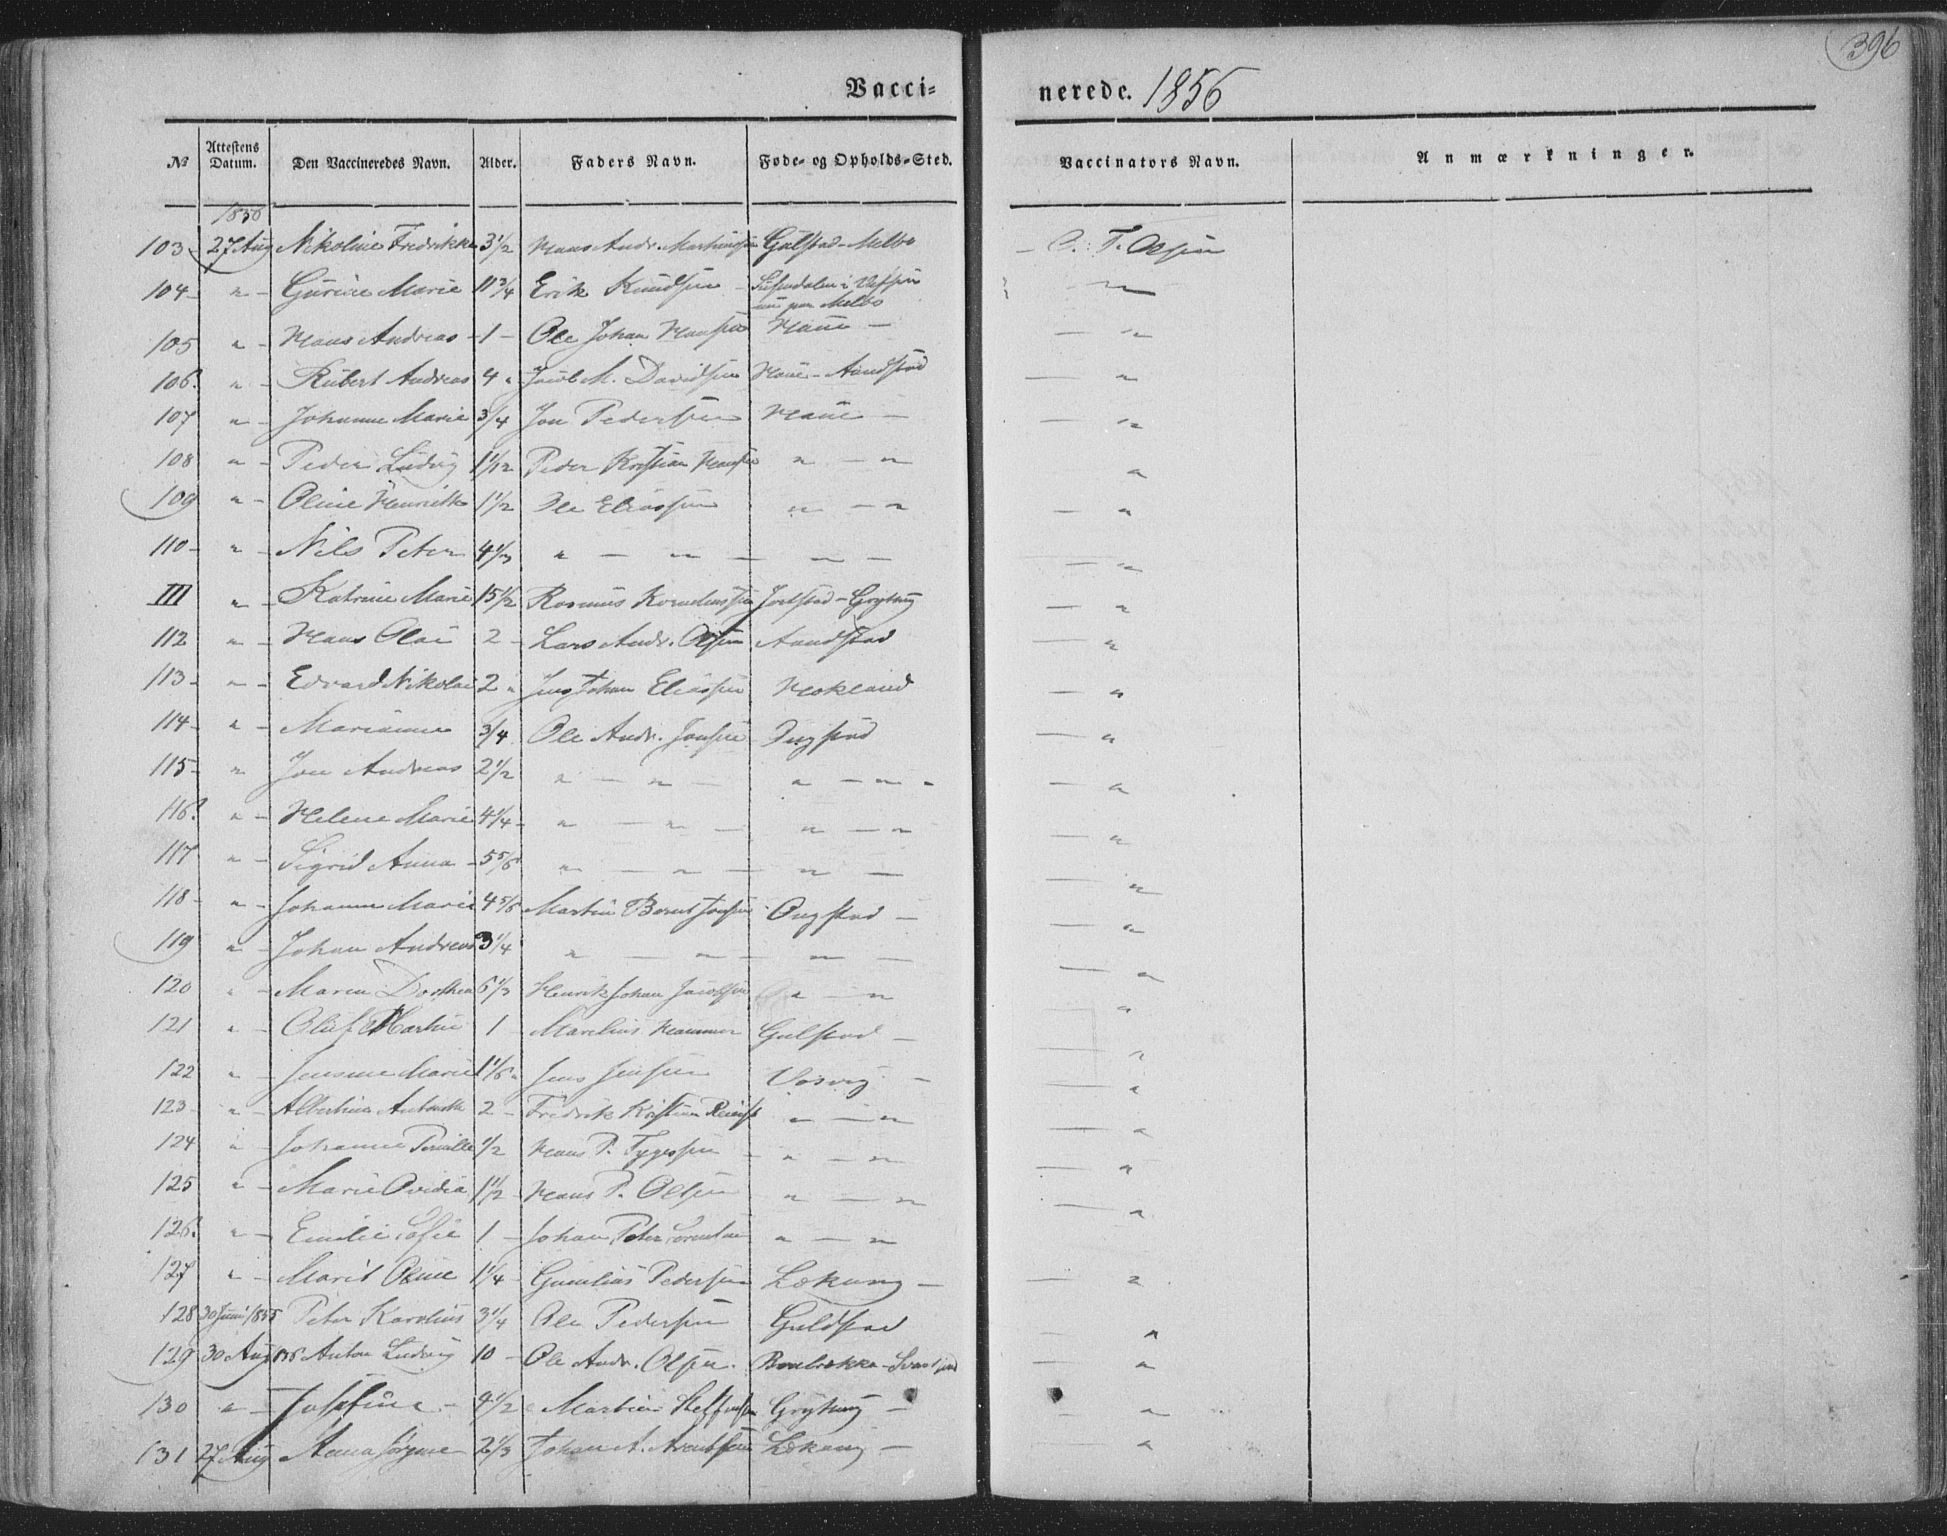 396
Vacci-
nerede. 1856
No Attestens Datum. Den Vaccineredes Navn. Alder. Faders Navn. Føde- og Opholds-Sted. Vaccinators Navn. Anmærkninger.
1856
103 27 Aug Nikoline Fredrikke 3 1/2 Hans Andr. Martinussen Gulstad - Melbo O. T. Olsen
104 " Gurine Marie 11 3/4 Erik Knudsen Susendalen i Vefsen "
nu paa Melbo
105 " Hans Andreas 1 Ole Johan Hansen Haue "
106. " Rubert Andreas 4 " Jacob M. Davidsen Haue - Aundstad "
107 " Johanne Marie 3/4 Jon Pedersen Haue "
108 " Peder Ludvig 1 1/12 Peder Kristian Hansen " " "
109 " Oline Henrikke 1 1/2 Ole Eliassen " " "
110 " Nils Peter 4 1/3 " " " " "
111 " Katrine Marie 15 1/2 Rasmus Korneliussen Jørlstad - Grytting "
112 " Hans Olai 2 Lars Andr. Olsen Aundstad "
113 " Edvard Nikolai 2 " Jens Johan Eliassen Hokland "
114 " Marianne 3/4 Ole Andr. Jonsen Ingstad "
115 " Jon Andreas 2 1/2 " " " " "
116. " Helene Marie 4 1/4 " " " " "
117 " Sigrid Anna 5 5/6 " " " "
118 " Johanne Marie 4 5/6 Martin Bernt Jonsen Ongstad "
119 " Johan Andreas 3 1/4 " " " "
120 " Maren Dorthea 6 1/3 Henrik Johan Jacobsen " " "
121 " Oluf Martin 1 Marelius Hammer Gulstad "
122 " Jensine Marie 1 1/6 " Jens Jensen Vorvig "
123 " Albertine Antonette 2 Fredrik Kristian " " "
124 " Johanne Pernille 1/2 Hans P. Tygesen " " "
125 " Marie Ovidia 1 1/2 Hans P. Olsen " " "
126. " Emilie Sofie 1 Johan Peter " " "
127 " Marit Oline 1 1/4 Gunelius Pedersen Lekang "
128 30 Juni 1855 Peter Karolius 3 1/4 Ole Pedersen Guldstad "
129 30 Aug 1856 Anton Ludvig 10 Ole Andr. Olsen Breibrække - "
130 " Josefine 4 1/2 Martin Steffensen Grytting "
131 27 Aug Anna Jørgine 2 1/3 Johan A. Arentsen Lekang "